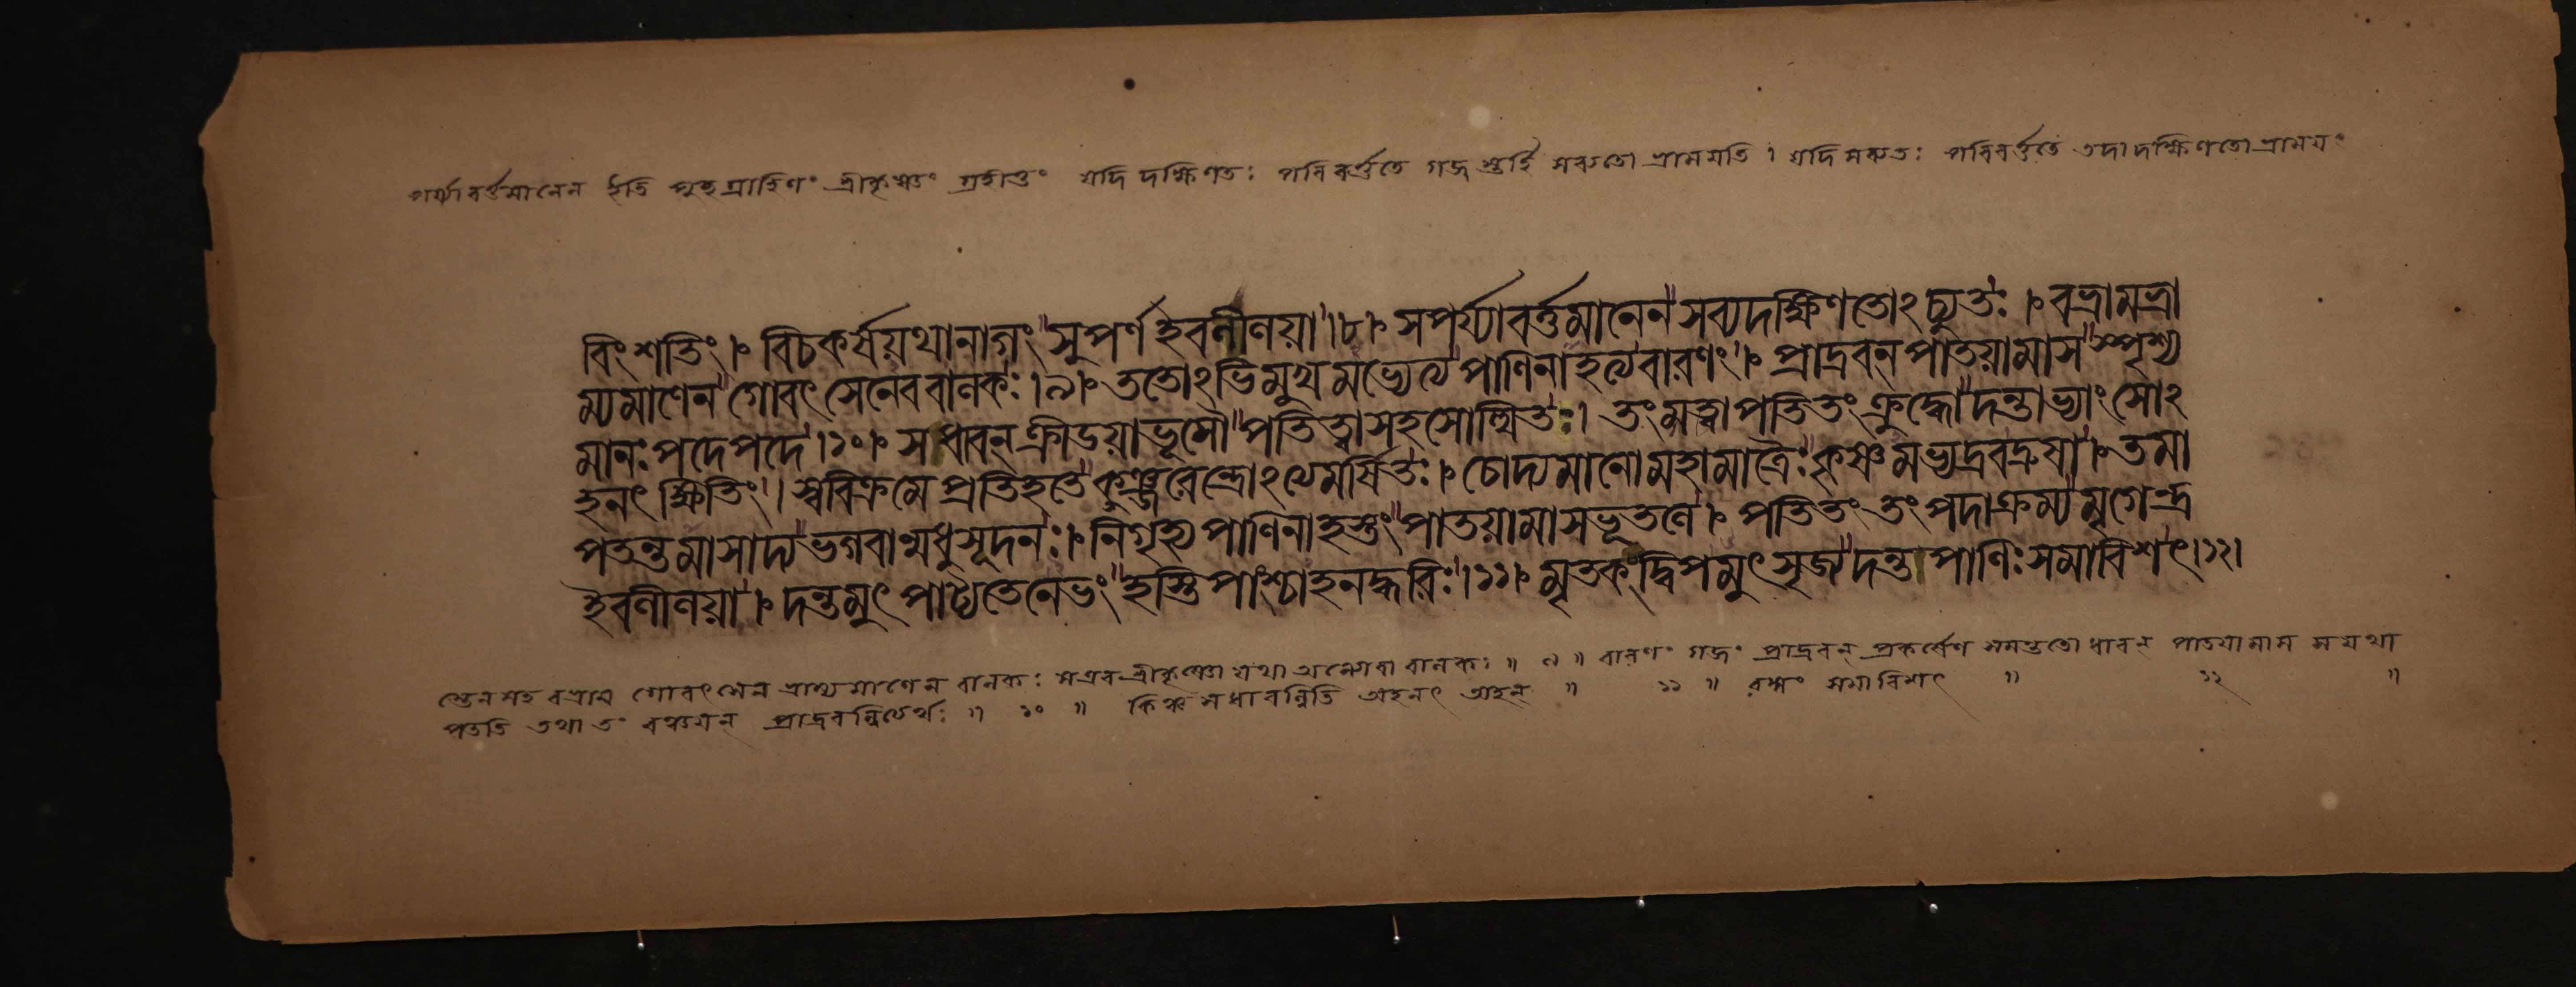 পর্য্যাবর্ত্তমানেন ইতি পুচ্ছগ্রাহিণং শ্রীকৃষ্ণং গ্রহীতুং যদি দক্ষিণতঃ পরিবর্ত্ততে গজস্তর্হি সব্যতো ভ্রাময়তি । যদি সব্যতঃ পরিবর্ত্ততে তদা দক্ষিণতো ভ্রাময়ং
বিংশতিং । বিচকর্ষযথানাগং সুপর্ণইবলীলয়া ।৮। সপর্য্যাবর্ত্তমানেন সব্যদক্ষিণতোঽচ্যুতঃ । বভ্রামভ্রা
ম্যমাণেন গোবৎসেনেববালকঃ ।৯। ততোঽভিমুখমভ্যেত্য পাণিনাহত্যবারণং । প্রাদ্রবন্ পাতয়ামাস স্পৃশ্য
মানঃ পদেপদে ।১০। সধাবন্ ক্রীডয়াভূমৌ পতিত্বাসহসোত্থিতঃ । তংমত্বাপতিতং ক্রুদ্ধোদন্তাভ্যাং সোঽ
হনৎ ক্ষিতিং । স্ববিক্রমে প্রতিহতে কুঞ্জরেন্দ্রোঽত্যমর্ষিতঃ । চোদ্যমানোমহামাত্রৈঃ কৃষ্ণমভ্যদ্রবদ্রুষা । তমা
পতন্তমাসাদ্য ভগবান্মধুসূদনঃ । নিগৃহ্য পাণিনাহস্তং পাতয়ামাসভূতলে । পতিতং তংপদাক্রম্য মৃগেন্দ্র
ইবলীলয়া । দন্তমুৎপাট্যতেনেভং হস্তিপাংশ্চাহনদ্ধরিঃ ।১১। মৃতকংদ্বিপমুৎসৃজ্য দন্তপাণিঃ সমাবিশৎ ।১২।
স্তেনসহ বভ্রাম গোবৎসেন ভ্রাম্যমাণেন বালকঃ সএব শ্রীকৃষ্ণো যথা অন্যোবা বালকঃ ॥ ৯ ॥ বারণং গজং প্রাদ্রবন্ প্রকর্ষেণ সমন্ততো ধাবন্ পাতয়ামাস স যথা
পততি তথা তং বঞ্চয়ন্ প্রাদ্রবন্নিত্যর্থঃ ॥ ১০ ॥ কিঞ্চ সধাবন্নিতি অহনৎ অহন্ ॥ ১১ ॥ রঙ্গং সমাবিশৎ ॥ ১২ ॥